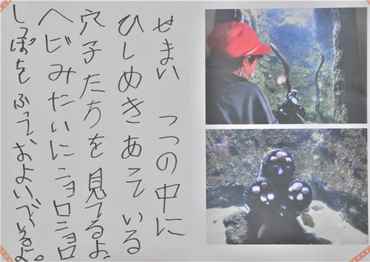 せまい つつの中に
ひしめきあっている
穴子たちを見てるよ。
ヘビみたいにニョロニョロ
しっぽをふっておよいでいるよ。